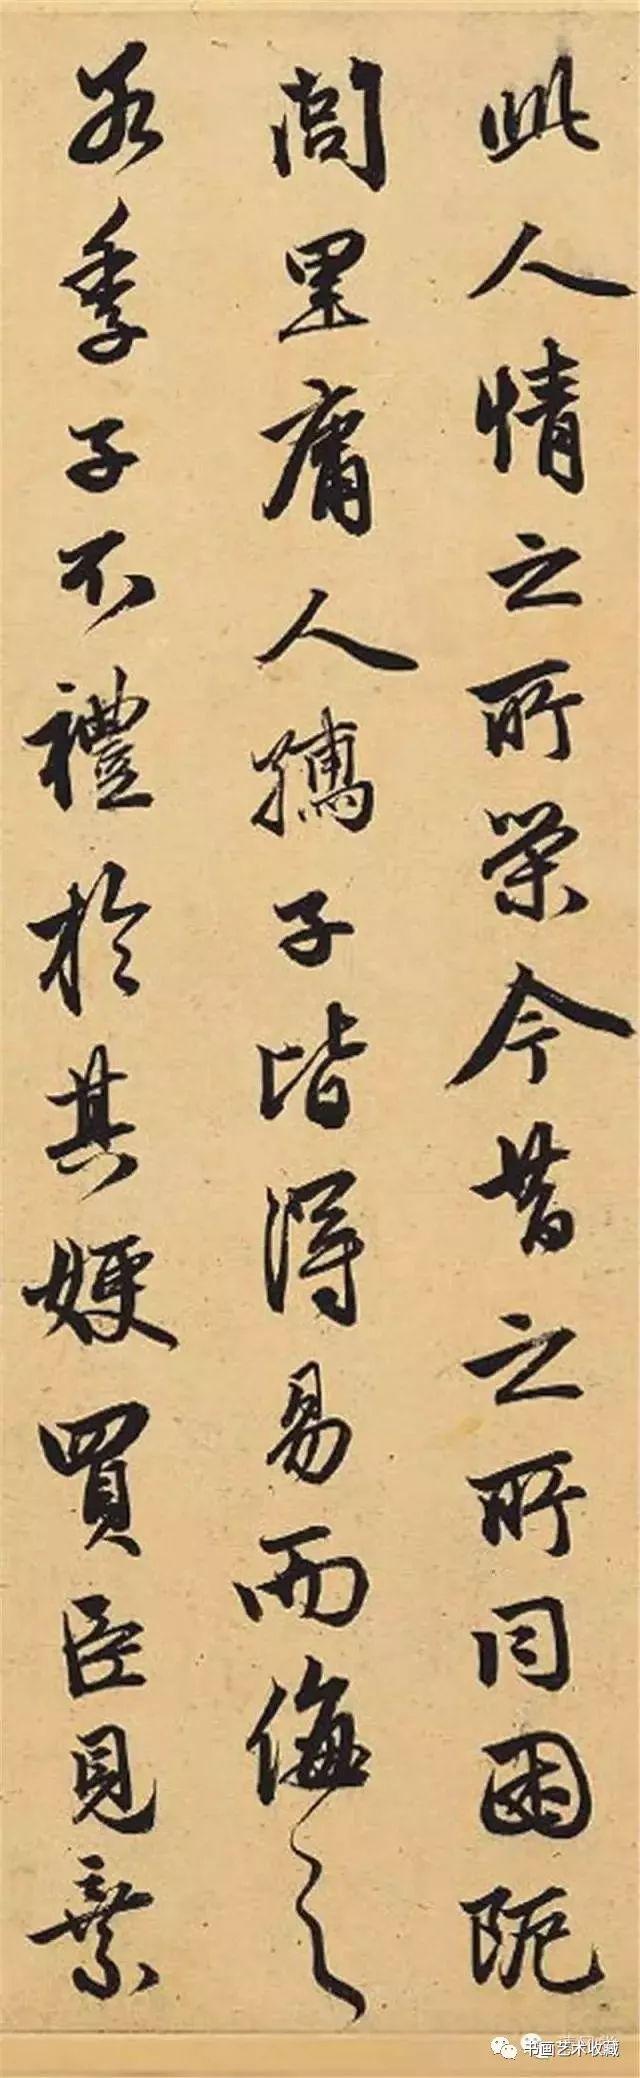 此人情之所榮今昔之所同困阨
閭里庸人孺子皆得易而侮之
若季子不禮於其嫂買臣見棄
书画艺术收藏